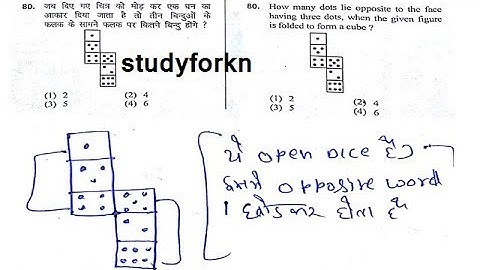 80. जब दिए गए चित्र को मोड़ कर एक घन का
आकार दिया जाता है तो तीन बिन्दुओं के
फलक के सामने फलक पर कितने बिन्दु होंगे ?
(1) 2 (2) 4
(3) 5 (4) 6
80. How many dots lie opposite to the face
having three dots, when the given figure
is folded to form a cube ?
(1) 2 (2) 4
(3) 5 (4) 6
studyforkn
ये open DICE है
इसमे opposite word
1 छोडकर होता है